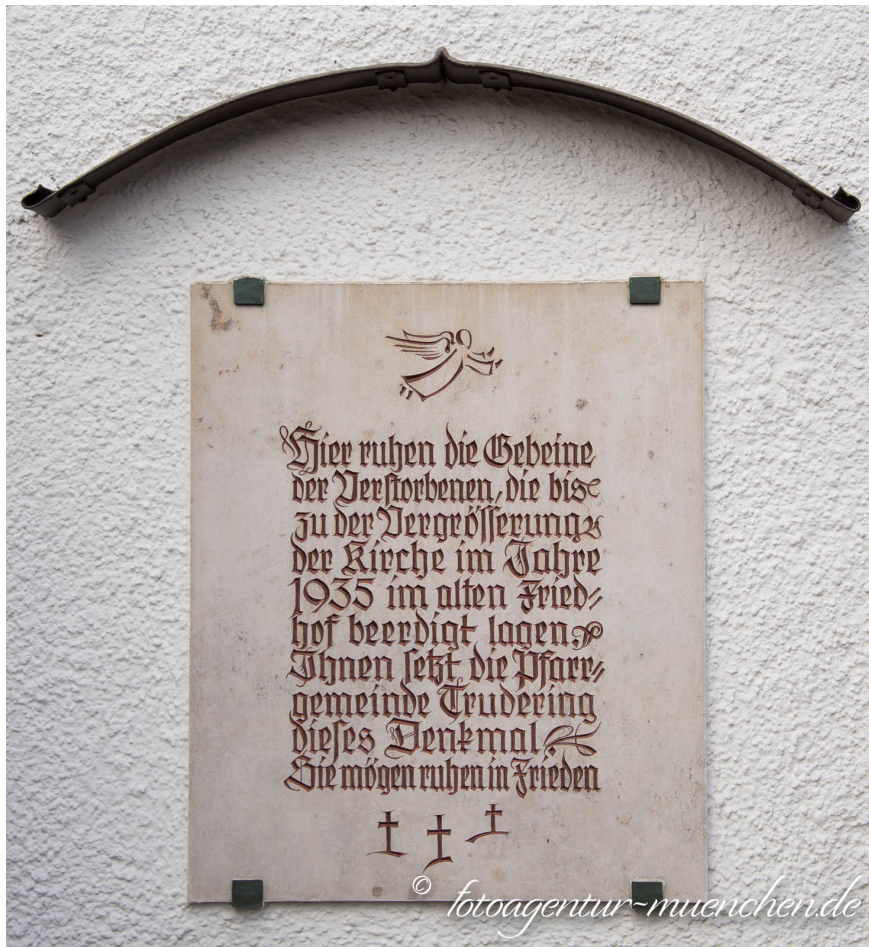 Hier ruhen die Gebeine
der Verstorbenen, die bis
zu der Vergrösserung
der Kirche im Jahre
1935 im alten Fried=
hof beerdigt lagen.
Ihnen setzt die Pfarr=
gemeinde Trudering
dieses Denkmal
Sie mögen ruhen in Frieden
© fotoagentur-muenchen.de